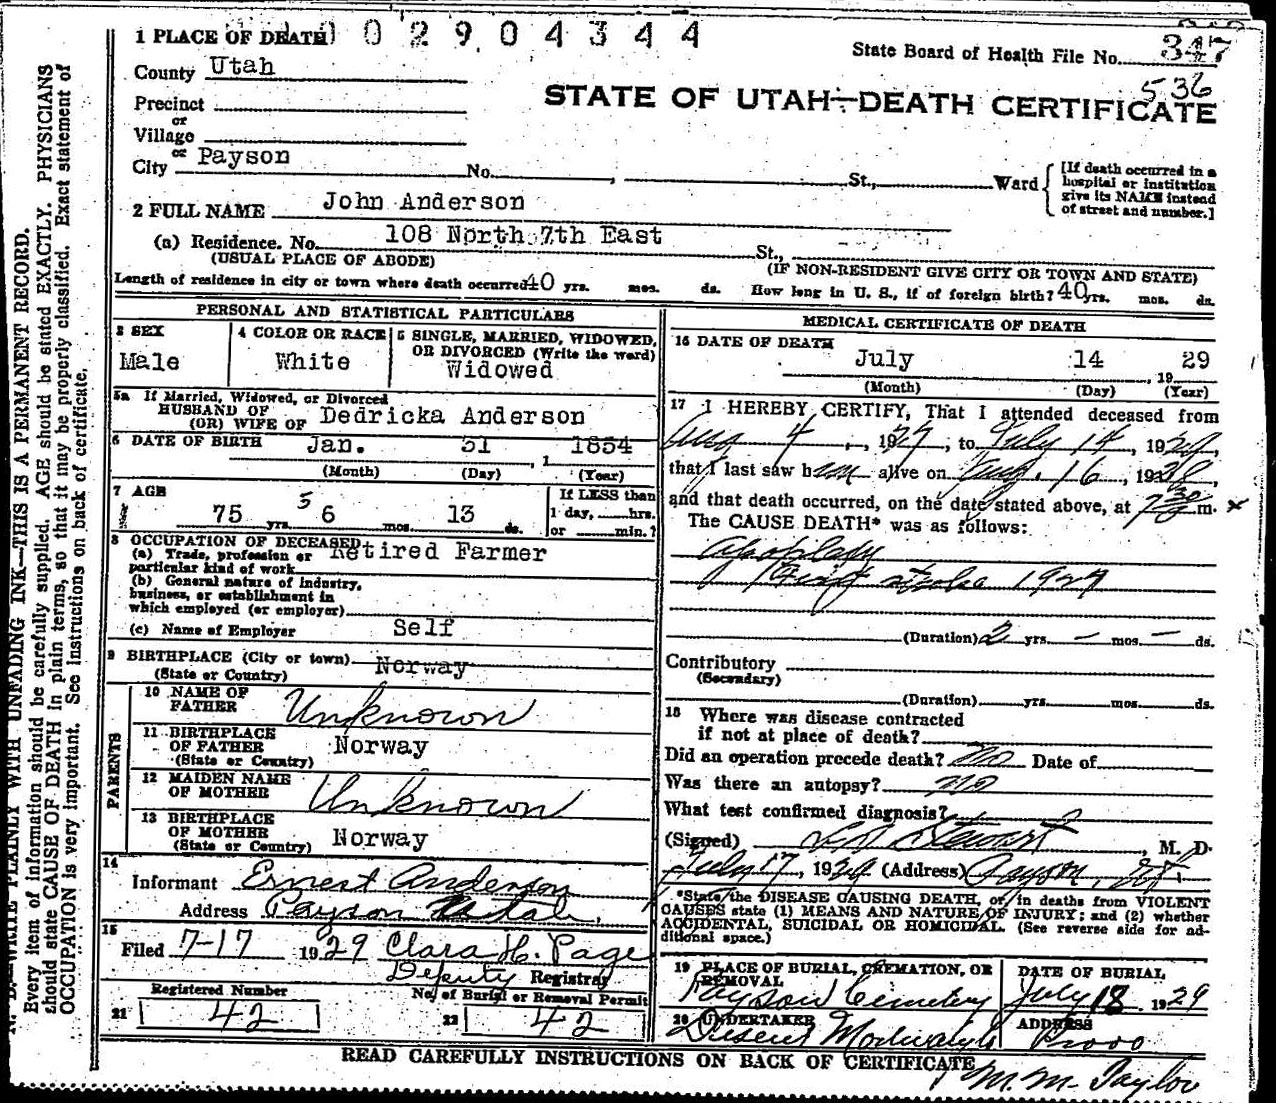 1 PLACE OF DEATH 0 0 2 9 0 4 3 4 4
State Board of Health File No. 347
County Utah
536
STATE OF UTAH—DEATH CERTIFICATE
Precinct
or
Village
or
City Payson No. , St., Ward
[If death occurred in a
hospital or institution
give its NAME instead
of street and number.]
2 FULL NAME John Anderson
(a) Residence. No. 108 North 7th East St.,
(USUAL PLACE OF ABODE) (IF NON-RESIDENT GIVE CITY OR TOWN AND STATE)
Length of residence in city or town where death occurred 40 yrs. mos. ds. How long in U. S., if of foreign birth? 40 yrs. mos. ds.
PERSONAL AND STATISTICAL PARTICULARS
3 SEX 4 COLOR OR RACE 5 SINGLE, MARRIED, WIDOWED,
OR DIVORCED (Write the word)
Male White Widowed
5a If Married, Widowed, or Divorced
HUSBAND OF
(OR) WIFE OF Dedricka Anderson
6 DATE OF BIRTH Jan. 31 , 1 1854
(Month) (Day) (Year)
7 AGE 5 If LESS than
75 yrs. 6 mos. 13 ds. 1 day, hrs.
or min.?
8 OCCUPATION OF DECEASED
(a) Trade, profession or Retired Farmer
particular kind of work
(b) General nature of industry,
business, or establishment in
which employed (or employer)
(c) Name of Employer Self
9 BIRTHPLACE (City or town) Norway
(State or Country)
PARENTS
10 NAME OF
FATHER Unknown
11 BIRTHPLACE
OF FATHER Norway
(State or Country)
12 MAIDEN NAME
OF MOTHER Unknown
13 BIRTHPLACE
OF MOTHER Norway
(State or Country)
14
Informant Ernest Anderson
Address Payson Utah,
15
Filed 7-17 1929 Clara H. Page
Deputy Registrar
Registered Number No. of Burial or Removal Permit
21 42 22 42
MEDICAL CERTIFICATE OF DEATH
16 DATE OF DEATH
July 14 , 19 29
(Month) (Day) (Year)
17 I HEREBY CERTIFY, That I attended deceased from
Aug 4 , 1927, to July 14, 1929,
that I last saw him alive on Aug. 16, 1928,
and that death occurred, on the date stated above, at 7 30 m. x
The CAUSE DEATH* was as follows:
Apoplexy
First stroke 1927
(Duration) 2 yrs. – mos. – ds.
Contributory
(Secondary)
(Duration) yrs. mos. ds.
18 Where was disease contracted
if not at place of death?
Did an operation precede death? No Date of
Was there an autopsy? no
What test confirmed diagnosis?
(Signed) Stewart, M. D.
July 17, 1929 (Address) Payson, Ut.
*State the DISEASE CAUSING DEATH, or in deaths from VIOLENT
CAUSES state (1) MEANS AND NATURE OF INJURY; and (2) whether
ACCIDENTAL, SUICIDAL OR HOMICIDAL. (See reverse side for ad-
ditional space.)
19 PLACE OF BURIAL, CREMATION, OR
REMOVAL
Payson Cemetery
DATE OF BURIAL
July 18 1929
20 UNDERTAKER
Deseret Mortuary
ADDRESS
Provo
READ CAREFULLY INSTRUCTIONS ON BACK OF CERTIFICATE
M. M. Taylor
WRITE PLAINLY WITH UNFADING INK—THIS IS A PERMANENT RECORD.
Every item of information should be carefully supplied. AGE should be stated EXACTLY. PHYSICIANS
should state CAUSE OF DEATH in plain terms, so that it may be properly classified. Exact statement of
OCCUPATION is very important. See instructions on back of certificate.